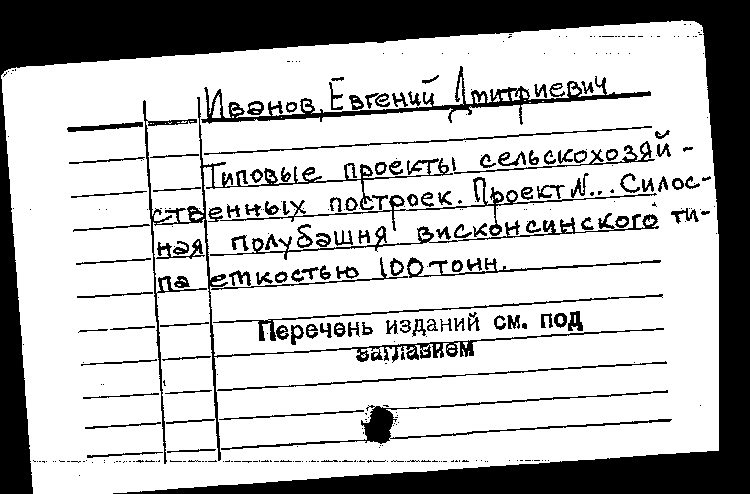 Иванов, Евгений Дмитриевич
Типовые проекты сельскохозяй-
ственных построек. Проект N... Силос-
ная полубашня висконсинского ти-
па еткостью 100 тонн.
Перечень изданий см. под
заглавием